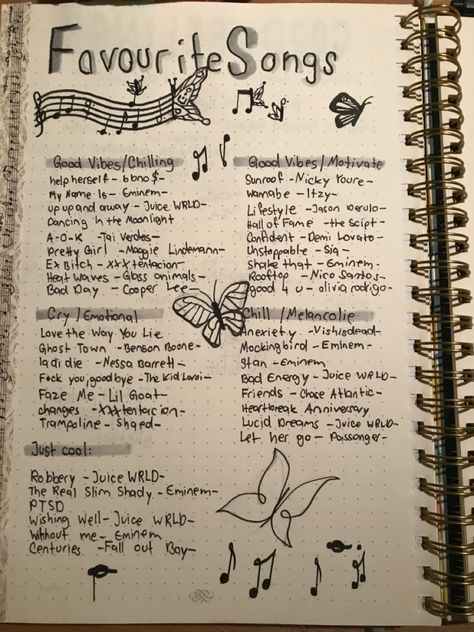 Favourite Songs
Good Vibes/Chilling
help herself - bbno $-
My Name Is - Eminem-
up up and away - Juice WRLD-
Dancing In the Moonlight
A-O-K - Tai Verdes-
Pretty Girl - Maggie Lindemann-
Ex Bitch - XXXtentacion-
Heat Waves - Glass animals-
Bad Day - Cooper Lee-
Good Vibes/Motivate
Sunroof - Nicky Youre-
Wannabe - Itzy-
Lifestyle - Jason Derulo-
Hall of Fame - the Script-
Confident - Demi Lovato-
Unstoppable - Sia-
Shake that - Eminem-
Rooftop - Nico Santos-
good 4 u - olivia rodrigo-
Cry/Emotional
Love the Way You Lie
Ghost Town - Benson Boone-
la di die - Nessa Barrett-
F*ck you, goodbye - The Kid Laroi-
Faze Me - Lil Goat-
changes - XXXtentacion-
Trampoline - Shaed-
Chill/Melancolie
Anexiety - Vishisdead-
Mockingbird - Eminem-
Stan - Eminem
Bad Energy - Juice WRLD-
Friends - Chase Atlantic-
Heartbreak Anniversary
Lucid Dreams - Juice WRLD-
Let her go - Passanger-
Just cool:
Robbery - Juice WRLD-
The Real Slim Shady - Eminem-
PTSD
Wishing Well - Juice WRLD-
Without me - Eminem
Centuries - Fall out Boy-